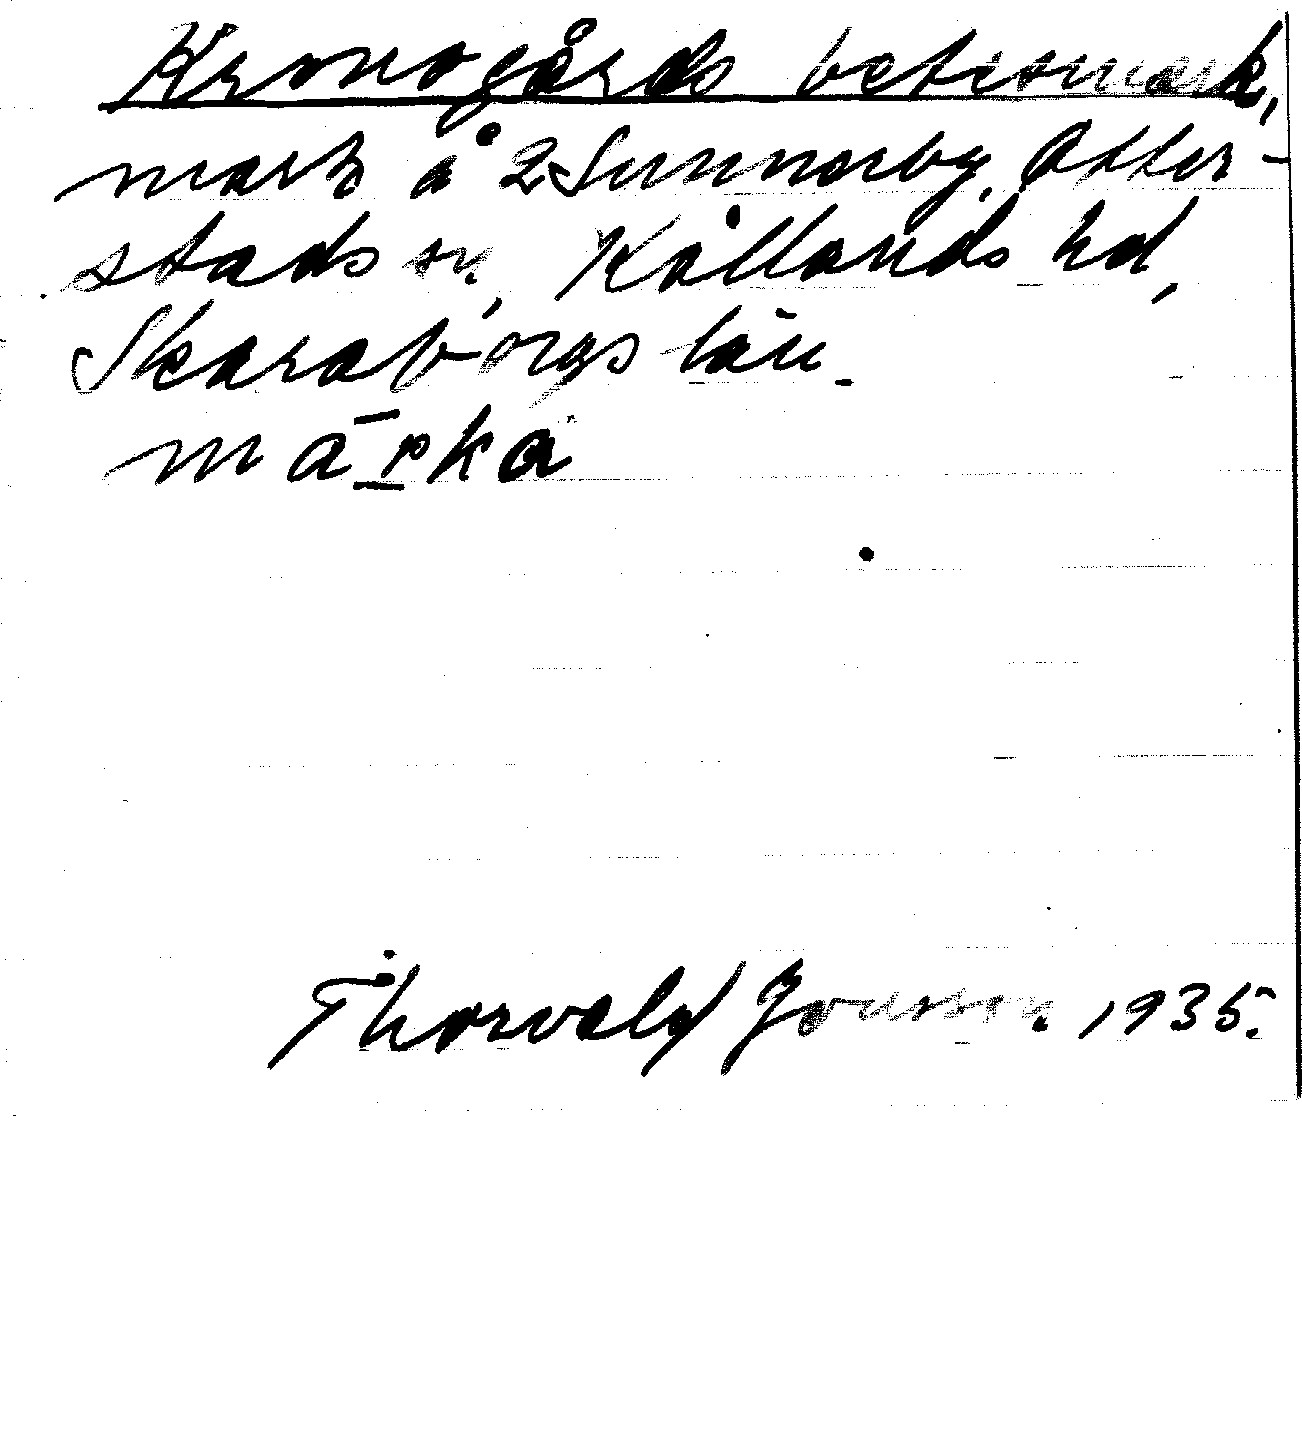 Kronogårds betesmark,
mark å 2 Sunnerby, Otter-
stads sn, Kållands hd,
Skaraborgs län.
märka
Thorvald Jonsson 1935.